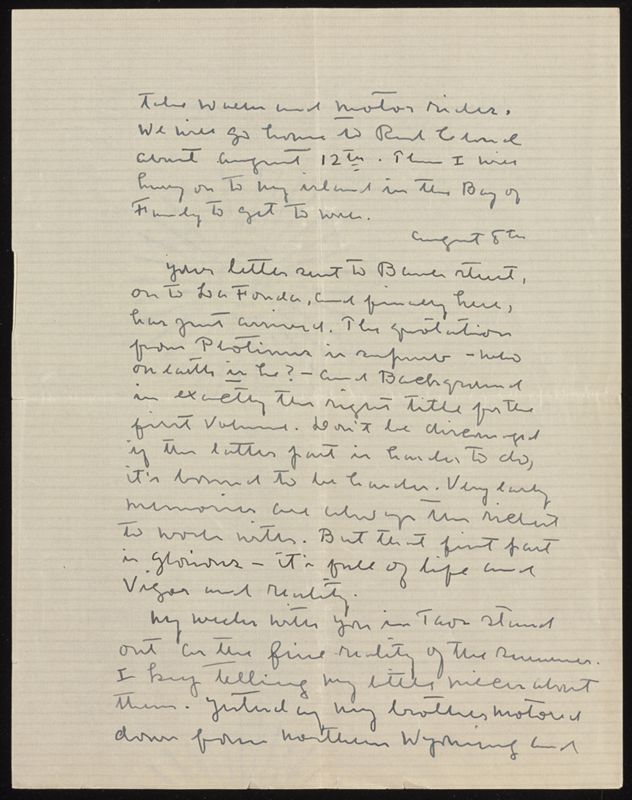 take walks and motor rides.
We will go home to Red Cloud
about August 12th. Then I will
hurry on to my island in the Bay of
Fundy to get to work.
August 8th
Your letter sent to Bank street,
on to La Fonda, and finally here,
has just arrived. The quotation
from Plotinus is superb - who
on earth is he? - and Background
is exactly the right title for the
first Volume. Don't be discouraged
if the latter part is harder to do,
it's bound to be harder. Very early
memories are always the richest
to work with. But that first part
is glorious - it's full of life and
Vigor and reality.
My weeks with you in Taos stand
out as the fine reality of the summer.
I keep telling my little nieces about
them. Yesterday my brother motored
down from northern Wyoming and